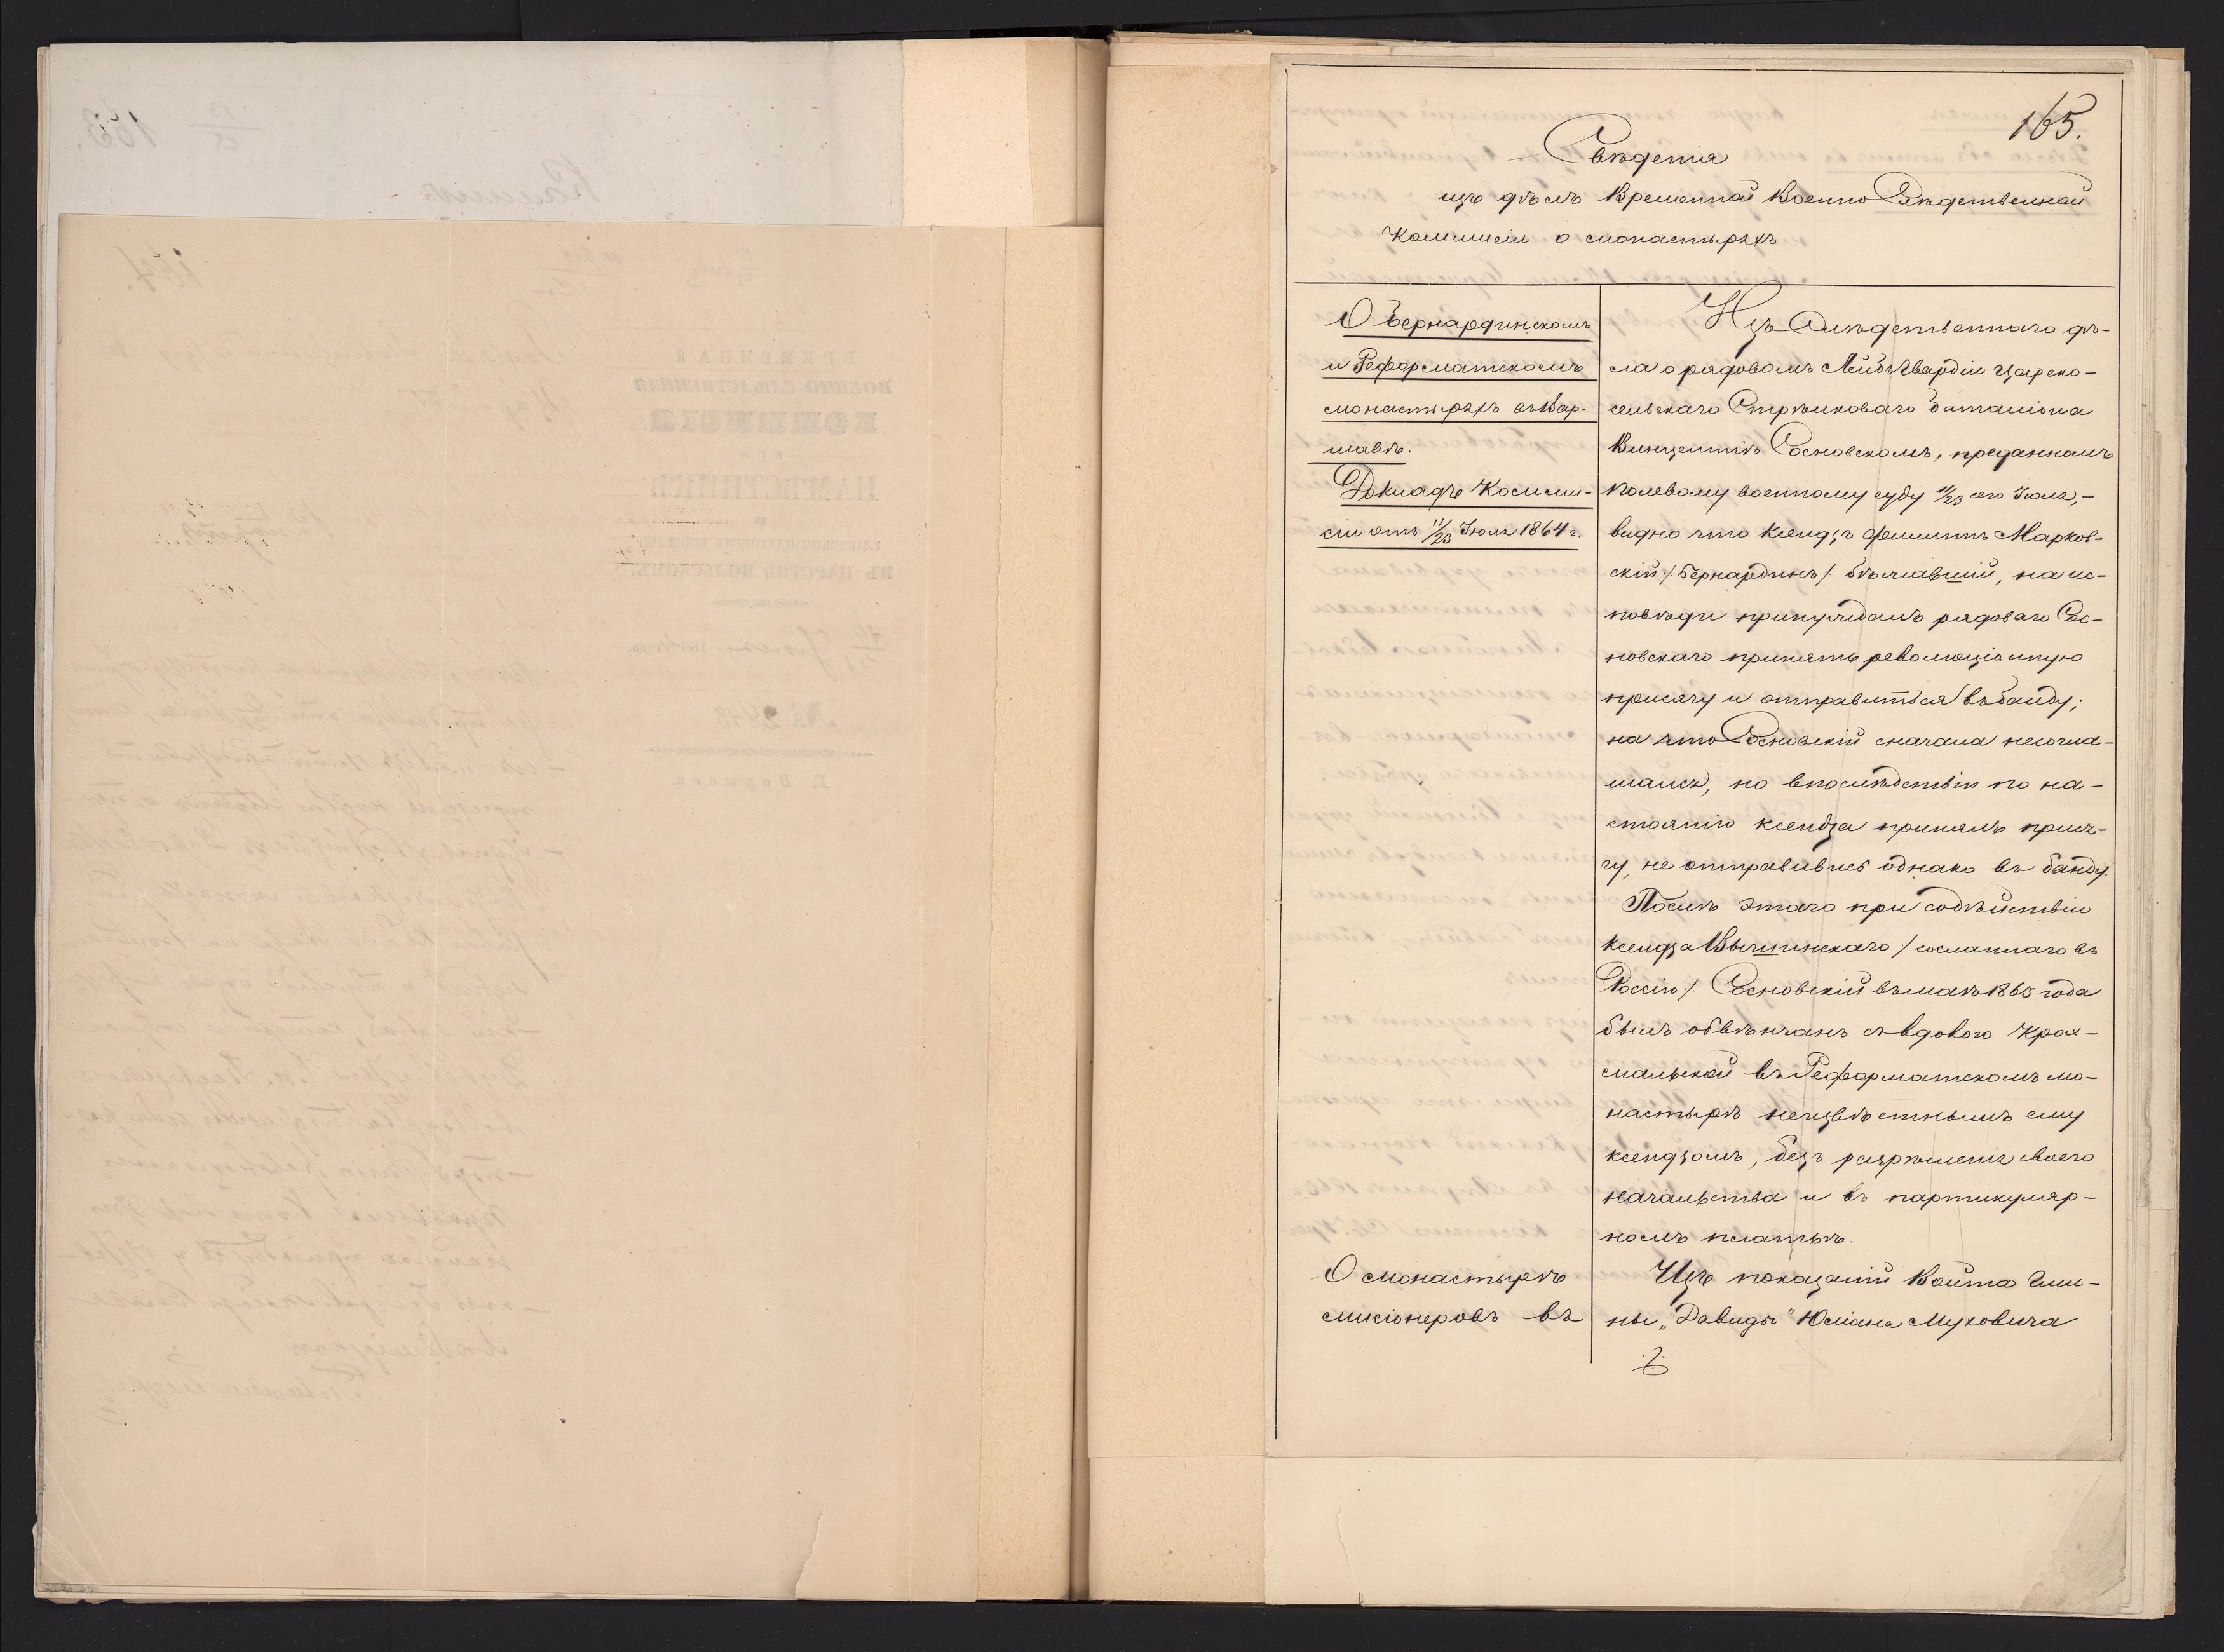 165.
Свѣдѣнія
изъ дѣлъ Временной Военно Слѣдственной
Коммисіи о монастыряхъ
О Бернардинскомъ
и Реформатскомъ
монастыряхъ въ Вар-
шавѣ.
Докладъ Комми-
сіи отъ 11/23 Іюля 1864 г.
Изъ Слѣдственнаго дѣ-
ла о рядовомъ Лейбъ Гвардіи Царско-
сельскаго Стрѣлковаго баталіона
Винцентіѣ Сосновскомъ, преданномъ
Полевому военному суду 11/23 сего Іюля,-
видно что Ксендзъ Марков-
скій /: Бернардинъ /: бѣжавшій, на ис-
повѣди принуждалъ рядоваго Сос-
новскаго принять революціонную
присягу и отправиться въ банду;
на что Сосновскій сначала несогла-
шался, но впослѣдствіи по на-
стоянію ксендза принялъ прися-
гу, не отправившись однако въ банду.
Послѣ этаго при содѣйствіи
Ксендза Вычшинскаго /: сосланнаго въ
Россію /: Сосновскій въ маѣ 1863 года
былъ обвѣнчанъ съ вдовою Крох-
мальской въ Реформатскомъ мо-
настырѣ неизвѣстнымъ ему
ксендзомъ, безъ разрѣшенія своего
начальства и въ партикуляр-
номъ платьѣ.
О монастырѣ
миссіонеровъ въ
Изъ показаній Войта Гми-
ны „Давиды" Юліана Муховича